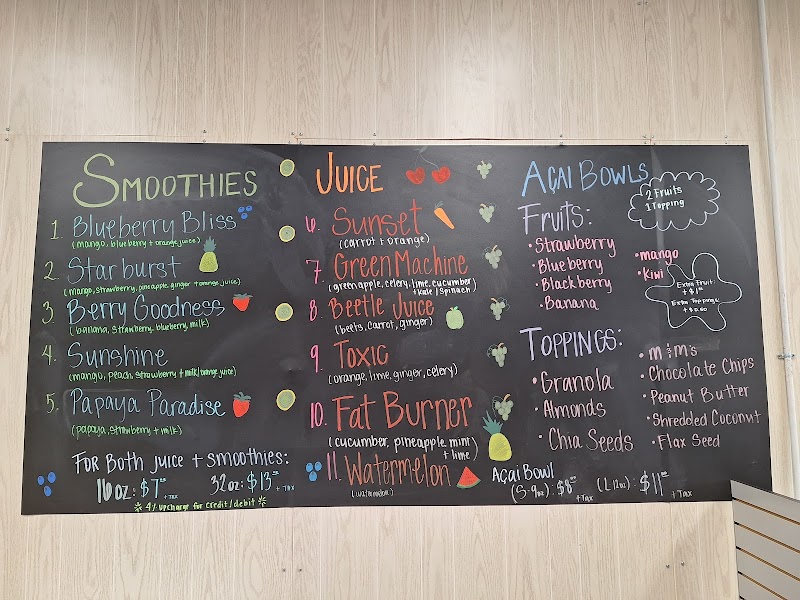 SMOOTHIES
1. Blueberry Bliss
(mango, blueberry + orange juice)
2. Starburst
(mango, strawberry, pineapple, ginger + orange juice)
3. Berry Goodness
(banana, strawberry, blueberry, milk)
4. Sunshine
(mango, peach, strawberry + milk/orange juice)
5. Papaya Paradise
(papaya, strawberry + milk)
FOR BOTH JUICE + SMOOTHIES:
16oz: $7.00 + TAX 32oz: $13.00 + TAX
4% upcharge for credit/debit
JUICE
6. Sunset
(carrot + orange)
7. Green Machine
(green apple, celery, lime, cucumber
+ kale / spinach)
8. Beetle Juice
(beets, carrot, ginger)
9. Toxic
(orange, lime, ginger, celery)
10. Fat Burner
(cucumber, pineapple, mint
+ lime)
11. Watermelon
(watermelon)
AÇAI BOWLS
2 Fruits
1 Topping
FRUITS:
• Strawberry
• Blueberry
• Blackberry
• Banana
• mango
• Kiwi
Extra Fruit
Extra Toppings
TOPPINGS:
• Granola
• Almonds
• Chia Seeds
• M&M's
• Chocolate Chips
• Peanut Butter
• Shredded Coconut
• Flax Seed
AÇAI BOWL
(S-9oz): $8.00 + TAX (L 12oz): $11.00 + TAX